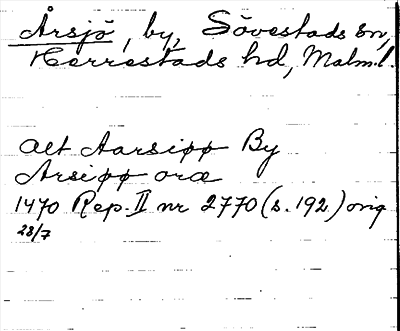 Årsjö, by, Sövestads sn,
Herrestads hd, Malm.l.
alt Aarsiøø By
Arsiøø oræ
1470 Rep. II nr 2770 (s. 192) orig
28/7